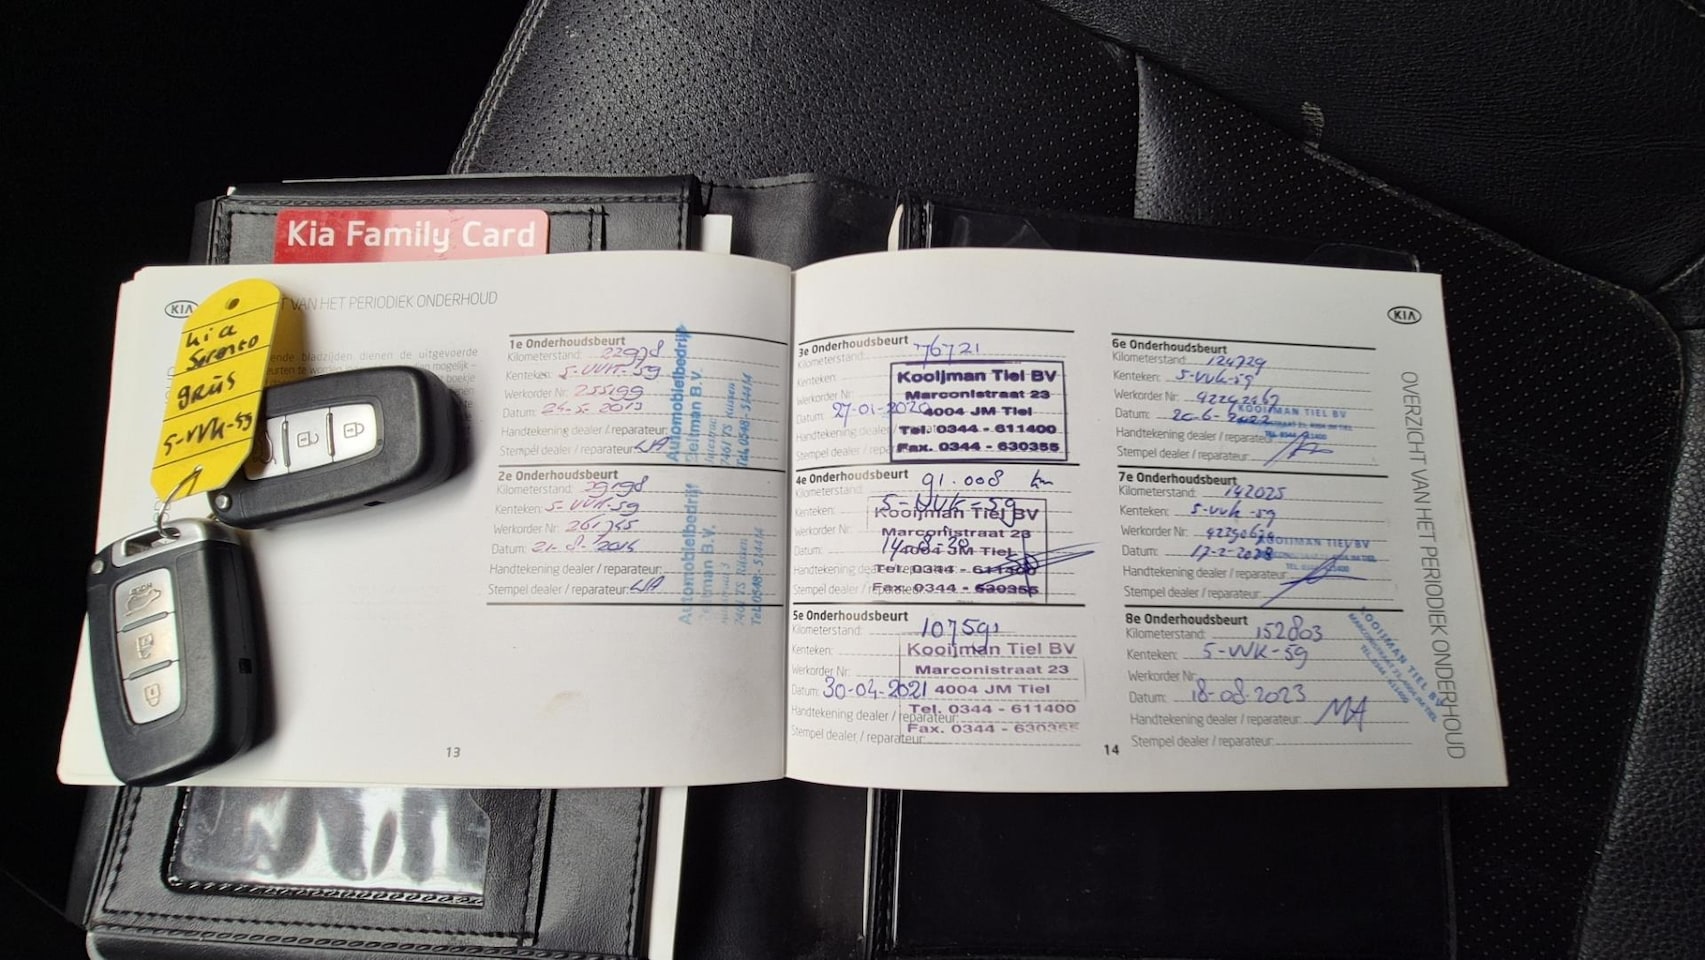 Kia Family Card
KIA
T VAN HET PERIODIEK ONDERHOUD
kia
Sorento
grijs
5-VVK-59
ende bladzijden dienen de uitgevoerde
1e Onderhoudsbeurt
Kilometerstand: 22978
Kenteken: 5-VVK-59
Werkorder Nr: 255199
Datum: 24-5-2013
Handtekening dealer / reparateur:
Stempel dealer / reparateur:
Automobielbedrijf
B.V.
2e Onderhoudsbeurt
Kilometerstand:
Kenteken: 5-VVK-59
Werkorder Nr:
Datum: 21-8-
Handtekening dealer / reparateur:
Stempel dealer / reparateur:
Automobielbedrijf
B.V.
13
3e Onderhoudsbeurt
Kilometerstand: 76721
Kenteken:
Werkorder Nr:
Datum: 27-01-2020
Handtekening dealer
Stempel dealer / repar
Kooijman Tiel BV
Marconistraat 23
4004 JM Tiel
Tel. 0344 - 611400
Fax. 0344 - 630355
4e Onderhoudsbeurt
Kilometerstand: 91.008 km
Kenteken: 5-VVK-59
Werkorder Nr:
Datum: 14-08-20
Kooijman Tiel BV
Marconistraat 23
4004 JM Tiel
Tel. 0344 - 611400
Fax. 0344 - 630355
5e Onderhoudsbeurt
Kilometerstand: 107591
Kenteken:
Werkorder Nr:
Datum: 30-04-2021
Handtekening dealer / reparateur:
Stempel dealer / reparateur:
Kooijman Tiel BV
Marconistraat 23
4004 JM Tiel
Tel. 0344 - 611400
Fax. 0344 - 630355
14
KIA
OVERZICHT VAN HET PERIODIEK ONDERHOUD
6e Onderhoudsbeurt
Kilometerstand: 124729
Kenteken: 5-VVK-59
Werkorder Nr:
Datum: 20-6-2022
Handtekening dealer / reparateur:
Stempel dealer / reparateur:
KOOIJMAN TIEL BV
7e Onderhoudsbeurt
Kilometerstand: 142025
Kenteken: 5-VVK-59
Werkorder Nr:
Datum:
Handtekening dealer / reparateur:
Stempel dealer / reparateur:
KOOIJMAN TIEL BV
8e Onderhoudsbeurt
Kilometerstand: 152803
Kenteken: 5-VVK-59
Werkorder Nr:
Datum: 18-08-2023
Handtekening dealer / reparateur:
Stempel dealer / reparateur:
KOOIJMAN TIEL BV